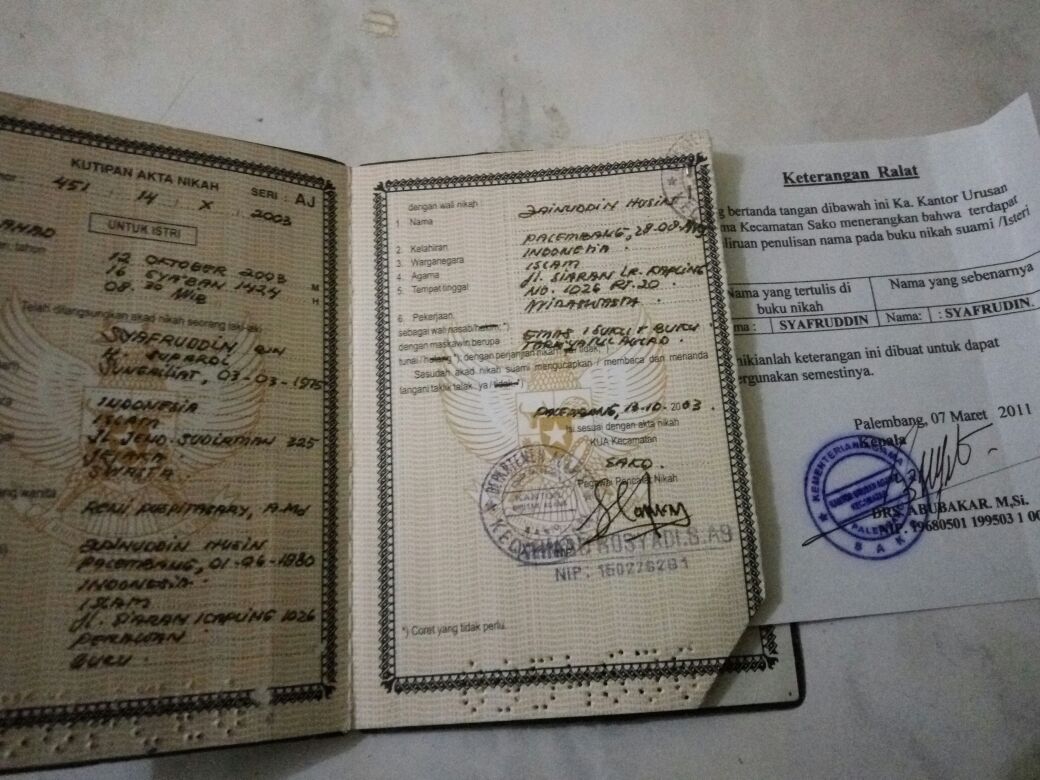 KUTIPAN AKTA NIKAH
SERI : AJ
451 14 X 2003
UNTUK ISTRI
AHAD
12 OKTOBER 2003 M
16 SYA'BAN 1424 H
08.30 WIB
Telah dilangsungkan akad nikah seorang laki-laki
SYAFRUDDIN BIN
H. SUPARDI
03-03-1975
INDONESIA
ISLAM
JL. JEND. SUDIRMAN 325
JEJAKA
SWASTA
A.Md
ZAINUDDIN HUSIN
PALEMBANG, 01-06-1980
INDONESIA
ISLAM
Jl. SIARAN KAPLING 1026
PERAWAN
GURU
dengan wali nikah
1. Nama ZAINUDDIN HUSIN
2. Kelahiran PALEMBANG,
3. Warganegara INDONESIA
4. Agama ISLAM
5. Tempat tinggal Jl. SIARAN LR. KAPLING
NO. 1026 RT. 20
6. Pekerjaan. WIRASWASTA
sebagai wali nasab/hakim, *)
dengan maskawin berupa EMAS 1 SUKU &
tunai /hutang *); dengan perjanjian nikah
Sesudah akad nikah suami mengucapkan / membaca dan menanda
tangani taklik talak ya / tidak *)
PALEMBANG, 2003.
Isi sesuai dengan akta nikah
KUA Kecamatan
SAKO.
Pegawai Pencatat Nikah
KANTOR
SAKO
KECAMATAN
RUSYADI S. AG
NIP. 150276291
*) Coret yang tidak perlu.
Keterangan Ralat
bertanda tangan dibawah ini Ka. Kantor Urusan
Kecamatan Sako menerangkan bahwa terdapat
penulisan nama pada buku nikah suami /Isteri
Nama yang tertulis di
buku nikah
Nama yang sebenarnya
SYAFRUDDIN
Nama: : SYAFRUDIN.
keterangan ini dibuat untuk dapat
semestinya.
Palembang, 07 Maret 2011
Kepala
KEMENTERIAN AGAMA
KANTOR URUSAN AGAMA
KECAMATAN
PALEMBANG
DRS. ABUBAKAR. M,Si.
NIP. 19680501 199503 1 00